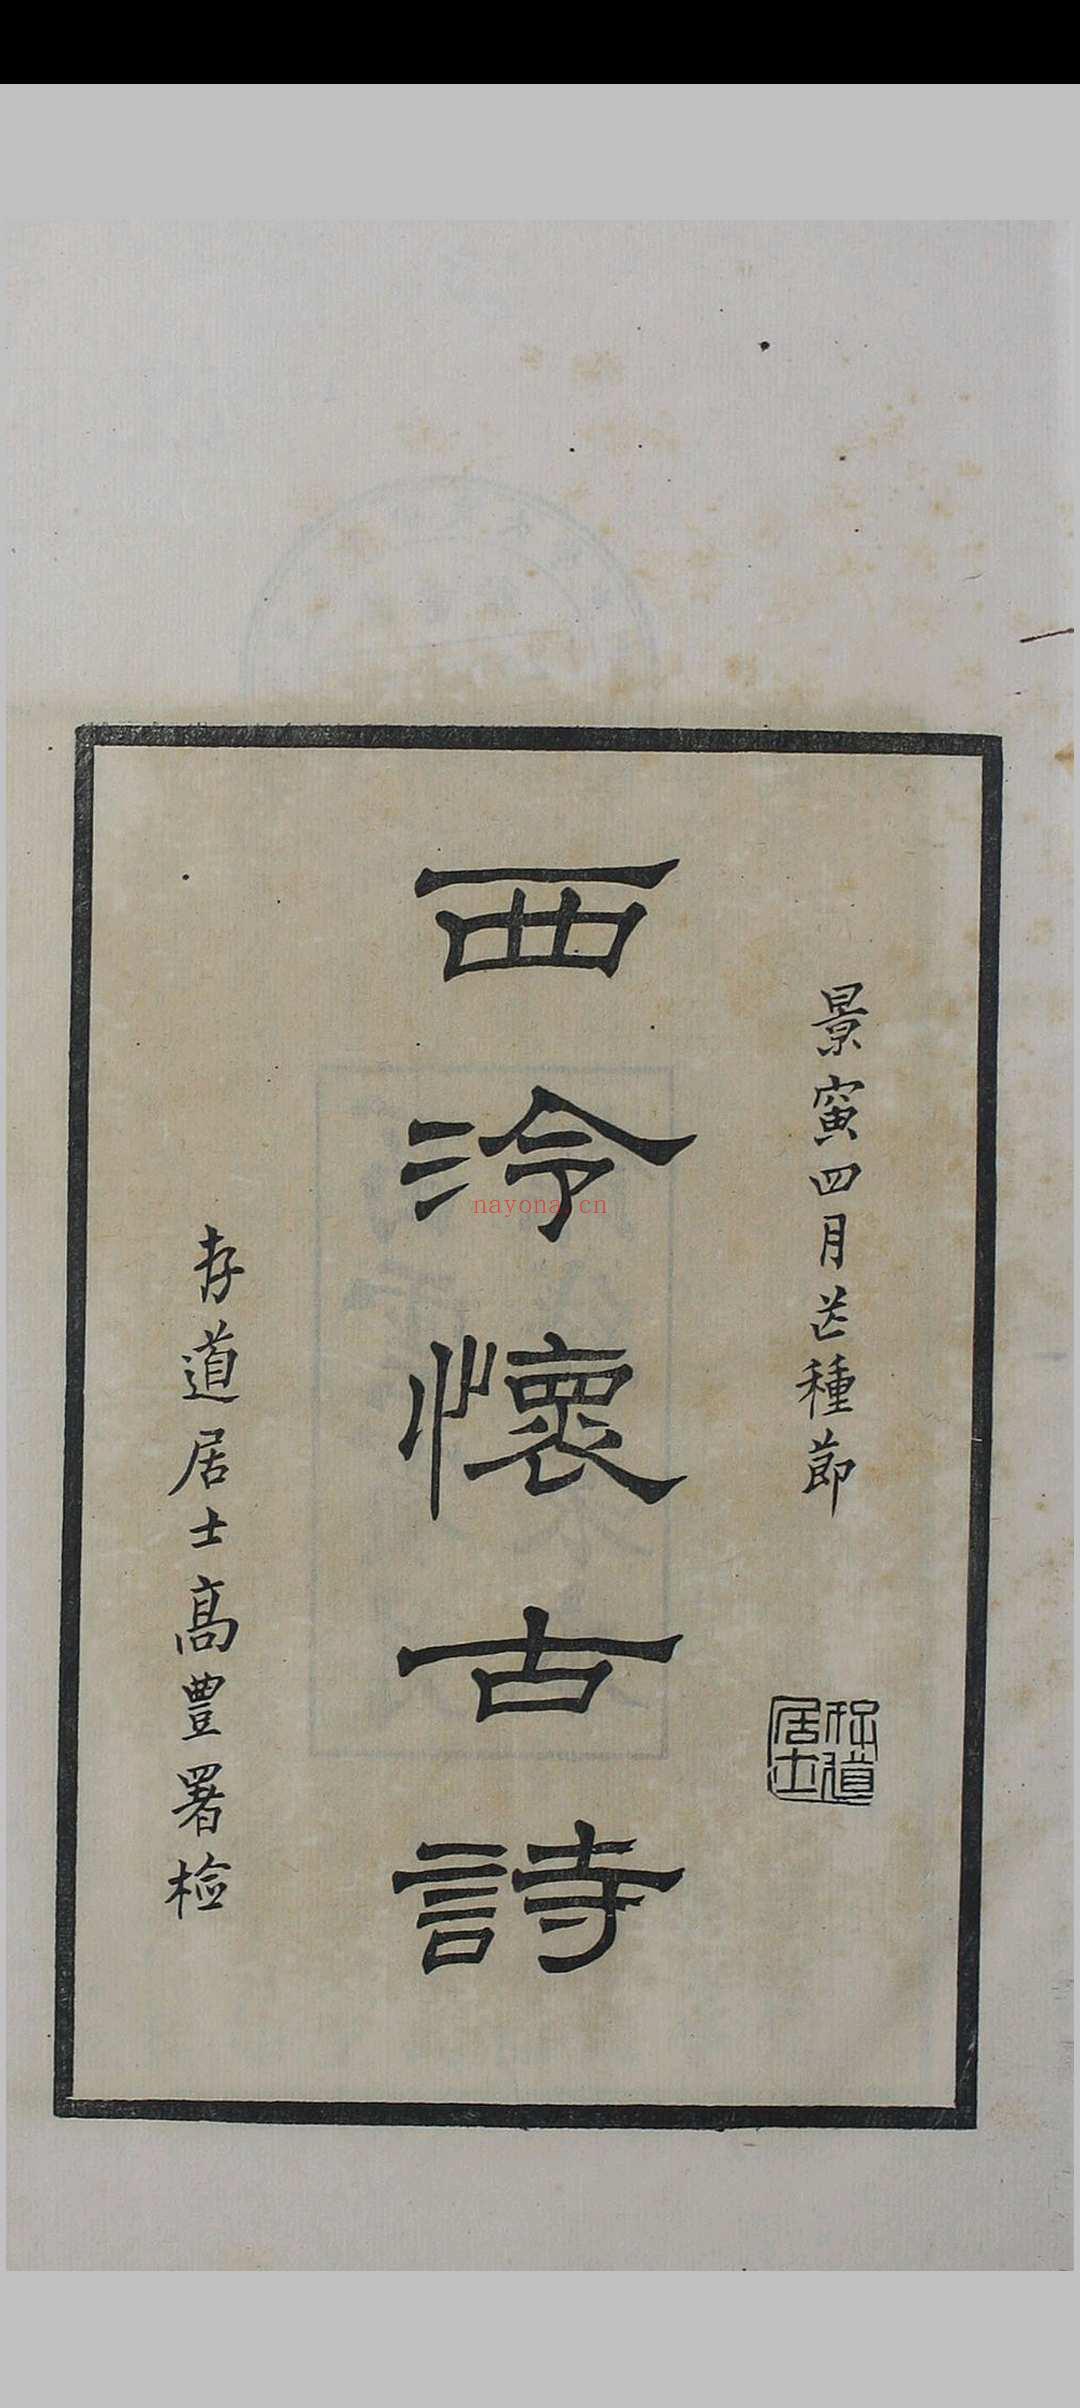 景寅四月芒種節
西泠懷古詩
存道居士高豐署檢
存道居士
nayona.cn